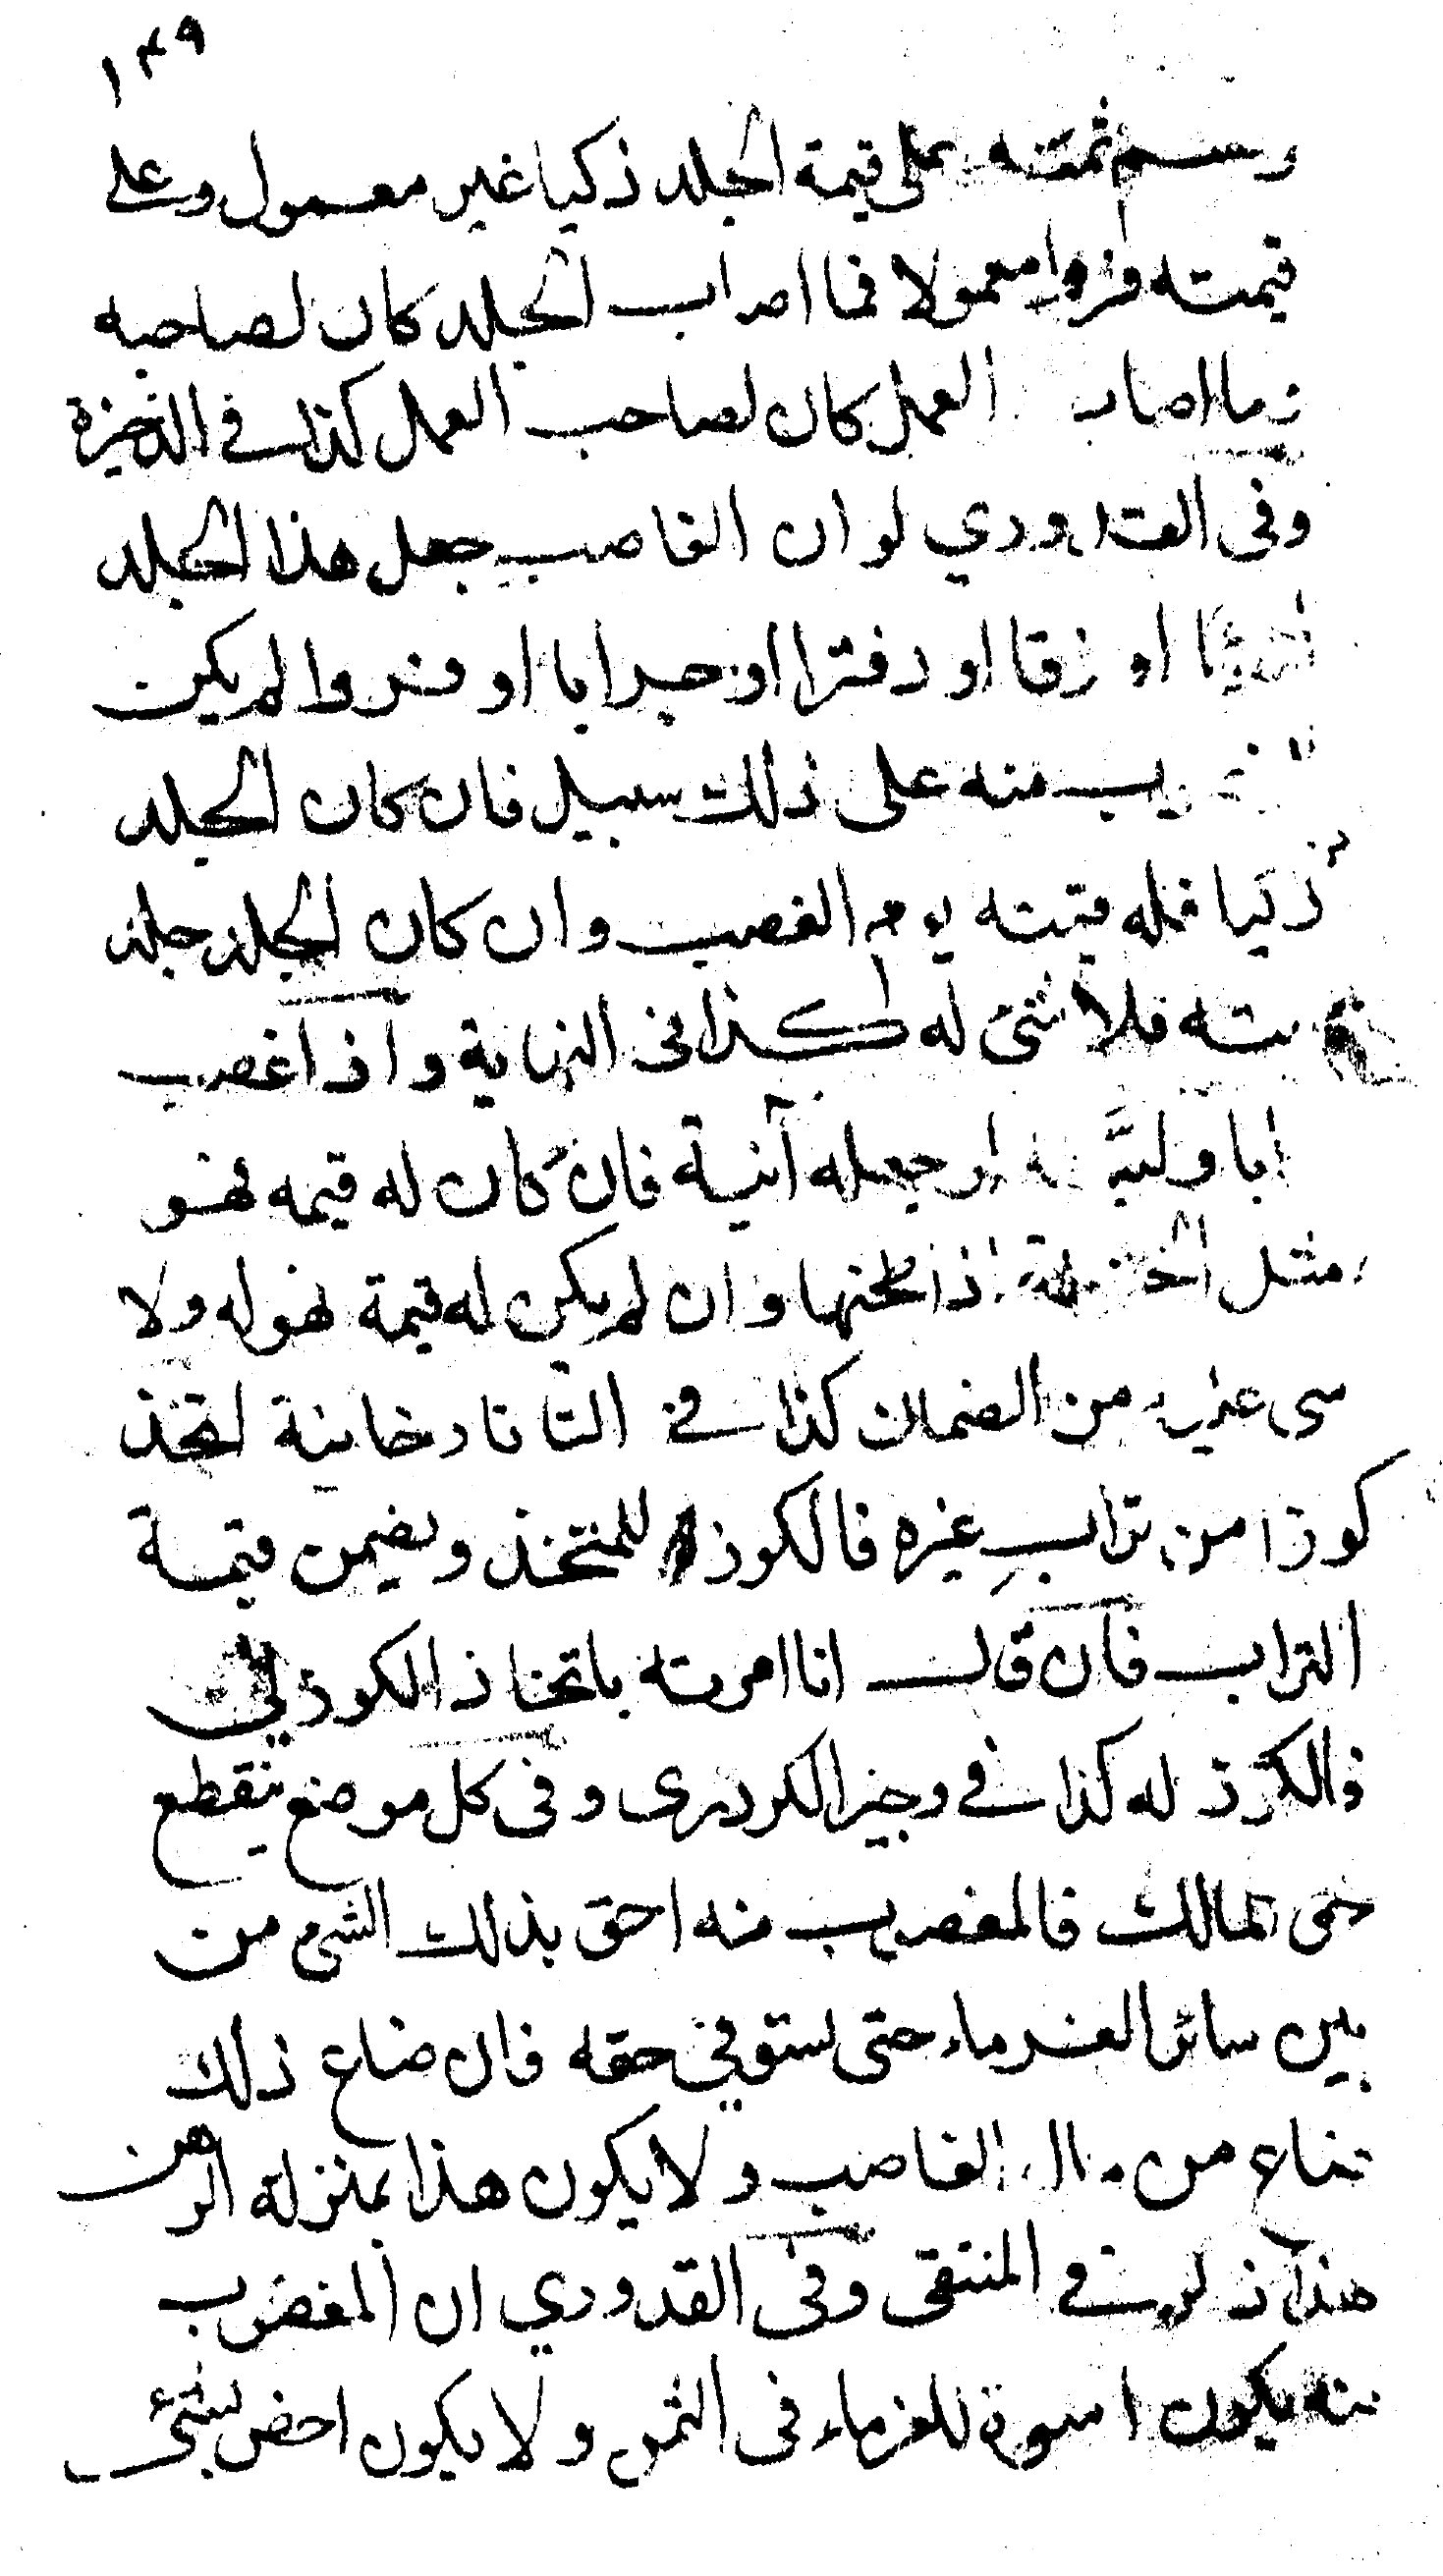 ١٣٩
وقسم ثمنه على قيمة الجلد ذكيا غير معمول وعلى
قيمته فروا معمولا فما اصاب الجلد كان لصاحبه
وما اصاب العمل كان لصاحب العمل كذا في الذخيرة
وفى القدوري لو ان الغاصب جعل هذا الجلد
او زقا او دفترا او جرابا او فروا لم يكن
منه على ذلك سبيل فان كان الجلد
ذكيا فله قيمته يوم الغصب وان كان الجلد جلد
ميتة فلا شئ له كذا فى النهاية واذا غصب
ترابا ولبنه او جعله آنية فان كان له قيمه فهو
مثل الحنطة اذا طحنها وان لم يكن له قيمة فهو له ولا
شى عليه من الضمان كذا في التاتارخانية اتخذ
كوزا من تراب غيره فالكوز للمتخذ ويضمن قيمة
التراب فان قال انا امرته باتخاذ الكوز لي
فالكوز له كذا في وجيز الكردرى وفى كل موضع ينقطع
حق المالك فالمغصوب منه احق بذلك الشئ من
بين سائر الغرماء حتى يستوفي حقه فان ضاع ذلك
ضاع من مال الغاصب ولا يكون هذا بمنزلة الرهن
هذا ذكر في المنتقى وفى القدوري ان المغصوب
منه يكون اسوة للغرماء فى الثمن ولا يكون احص بشئ